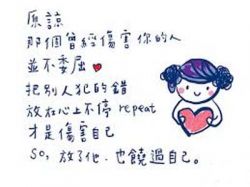 原諒
那個曾經傷害你的人
並不委屈
把別人犯的錯
放在心上不停 repeat
才是傷害自己
So, 放了他, 也饒過自己。